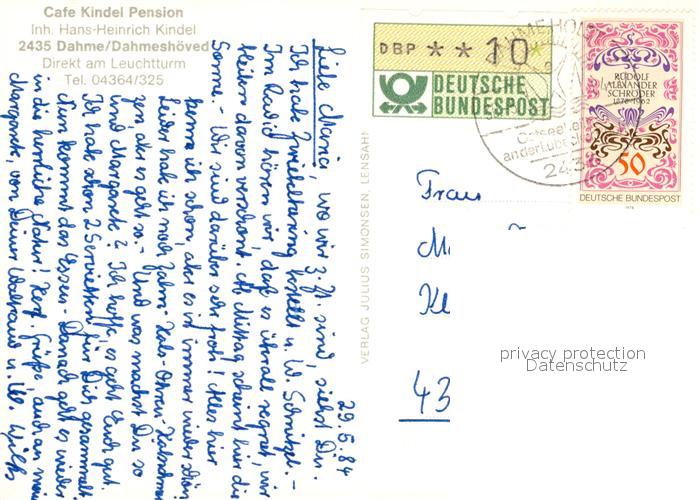 Cafe Kindel Pension
Inh. Hans-Heinrich Kindel
2435 Dahme/Dahmeshöved
Direkt am Leuchtturm
Tel. 04364/325
29.5.84
Liebe Maria, wo wir z. Zt. sind, siehst Du.
Ich habe Zwiebelhering bestellt u. W. Schnitzel. –
Im Radio hören wir, daß es überall regnet, wir
bleiben davon verschont. Ab Mittag scheint hier die
Sonne – Wir sind darüber sehr froh! Alles hier
kenne ich schon, aber es ist immer wieder schön
Leider habe ich noch Zahn-Hals-Ohren-
aber es geht so. – Und was machst Du so
und Margarete? Ich hoffe, es geht Euch gut.
Ich habe schon 2 Servietten für Dich gesammelt
Nun kommt das Essen – Danach geht es wieder
in die herrliche Natur! Herzl. Grüße, auch an
Margarete, von Deiner Waltraud u. W.
VERLAG JULIUS SIMONSEN, LENSAHN
DBP * * 10
DEUTSCHE
BUNDESPOST
RUDOLF
ALEXANDER
SCHRÖDER
1878-1962
50
DEUTSCHE BUNDESPOST
1978
Frau
43
privacy protection
Datenschutz